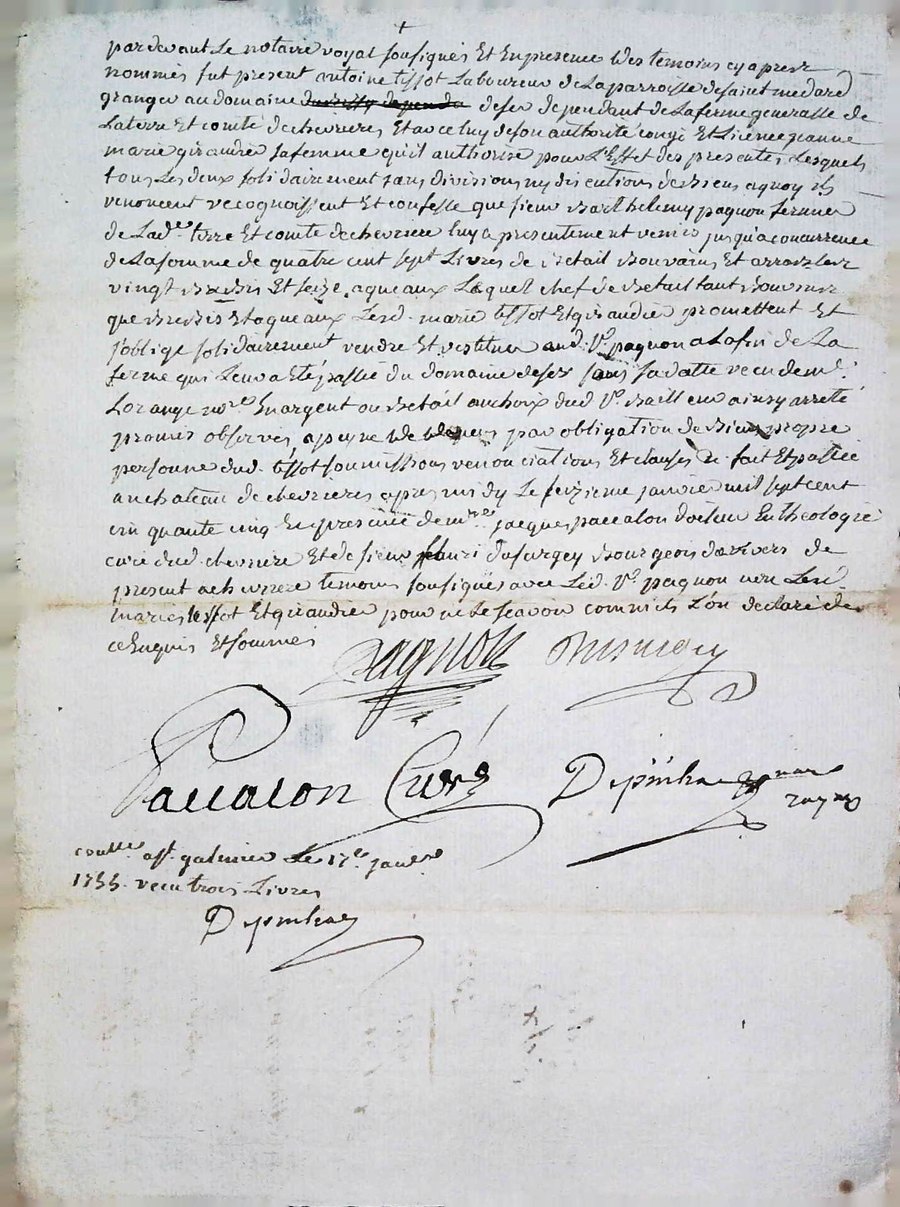 par devant Le notaire royal sousigné Et En presence des temoins cy apres
nommés fut present antoine tissot Laboureur de La parroisse de saint medard
granger au domaine de fer dependant de La ferme generalle de
La terre Et comté de chevrieres Et avec luy de son authorité congé Et Licence jeanne
marie girandié sa femme qu'il authorise pour L'Effet des presentes Lesquels
tous Les deux solidairement sans divisions ny discutions de biens aquoy ils
renoncent recognoissent Et confesse que sieur barthelemy pagnon fermier
de Lad.e terre Et comté de chevriere luy a presentement remis jusqu'a concurrence
de La somme de quatre cent sept Livres de betail bouvain Et
vingt brebis Et seize agneaux Lequel chef de betail tant
que brebis Et agneaux Lesd. mariés tissot Et girandié promettent Et
s'oblige solidairement rendre Et restituer aud. sr. pagnon a La fin de La
ferme qui Leur a Eté passée du domaine de fer sous sa datte recu de me.
Lorange nore. En argent ou betail au choix dud. sr. bailleur ainsy arreté
promis observer a peyne de par obligation de biens propre
personne dud. tissot soumissions renonciations Et clauses de fait Et passée
au chateau de chevrieres apres midy Le seizieme janvier mil sept cent
cinquante cinq En presence de mre. jacques paccalon docteur En theologie
curé dud. chevriere Et de sieur henri dusurgey bourgeois de
present a chevriere temoins sousignés avec Led. sr. pagnon non Lesd.
mariés tissot Et girandié pour ne Le scavoir comm'ils L'on declaré de
ce Enquis Et sommés
Pagnon
Paccalon Curé Depinhac
notre
royal
conllé a st. galmier Le 17e. janvier
1755. recu trois Livres
Depinhac